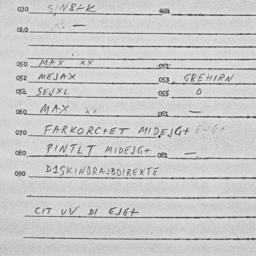 030 SINBFK 033
040 —
050 MAX XX 051
052 MEJAX 053 GREHIRN
054 SEJXL 055 0
060 MAX 061 —
070 FARKORCTET MIDEJGT
080 PINTLT MIDEJGT 081 —
090 DISKINDRAJBDIREXTE
CIT UV DI EJGT